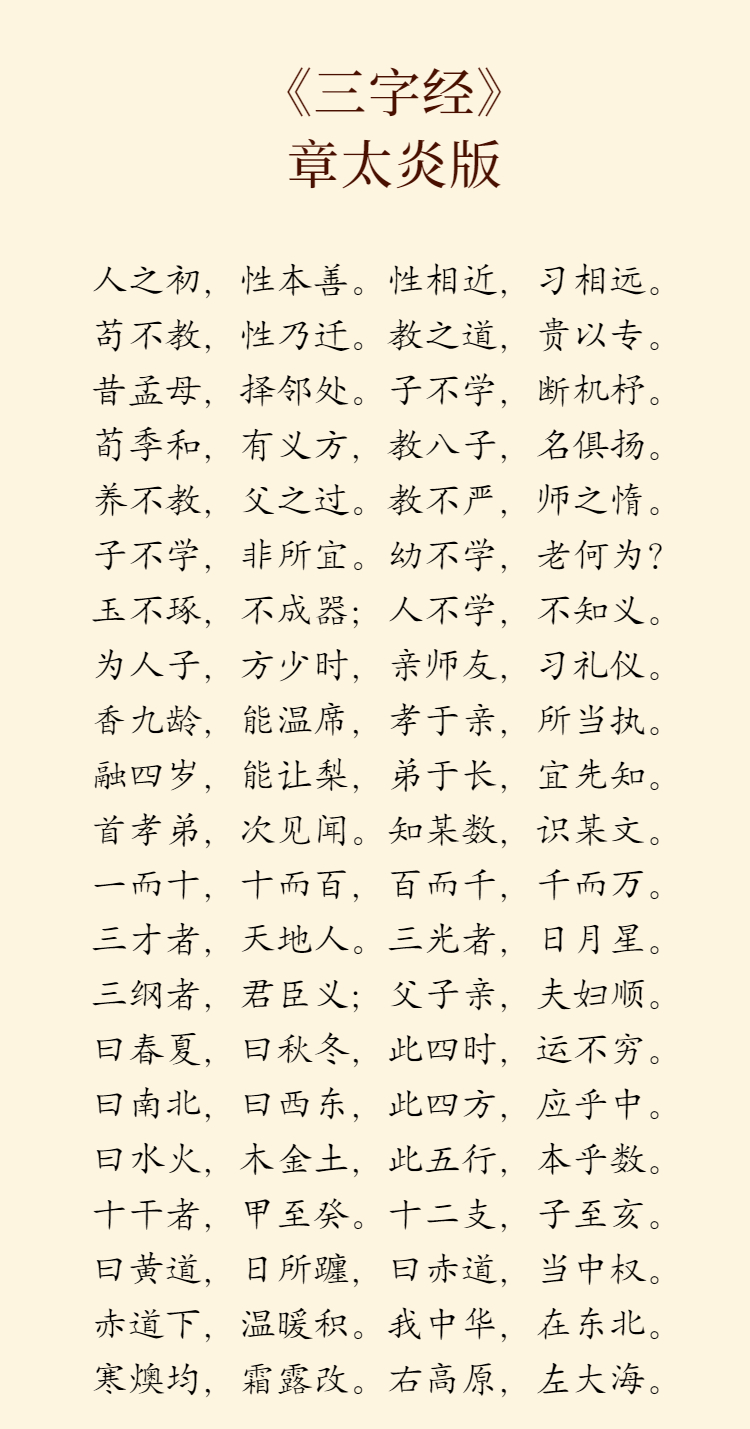 《三字经》
章太炎版
人之初，性本善。性相近，习相远。
苟不教，性乃迁。教之道，贵以专。
昔孟母，择邻处。子不学，断机杼。
荀季和，有义方，教八子，名俱扬。
养不教，父之过。教不严，师之惰。
子不学，非所宜。幼不学，老何为？
玉不琢，不成器；人不学，不知义。
为人子，方少时，亲师友，习礼仪。
香九龄，能温席，孝于亲，所当执。
融四岁，能让梨，弟于长，宜先知。
首孝弟，次见闻。知某数，识某文。
一而十，十而百，百而千，千而万。
三才者，天地人。三光者，日月星。
三纲者，君臣义；父子亲，夫妇顺。
曰春夏，曰秋冬，此四时，运不穷。
曰南北，曰西东，此四方，应乎中。
曰水火，木金土，此五行，本乎数。
十干者，甲至癸。十二支，子至亥。
曰黄道，日所躔，曰赤道，当中权。
赤道下，温暖积。我中华，在东北。
寒燠均，霜露改。右高原，左大海。